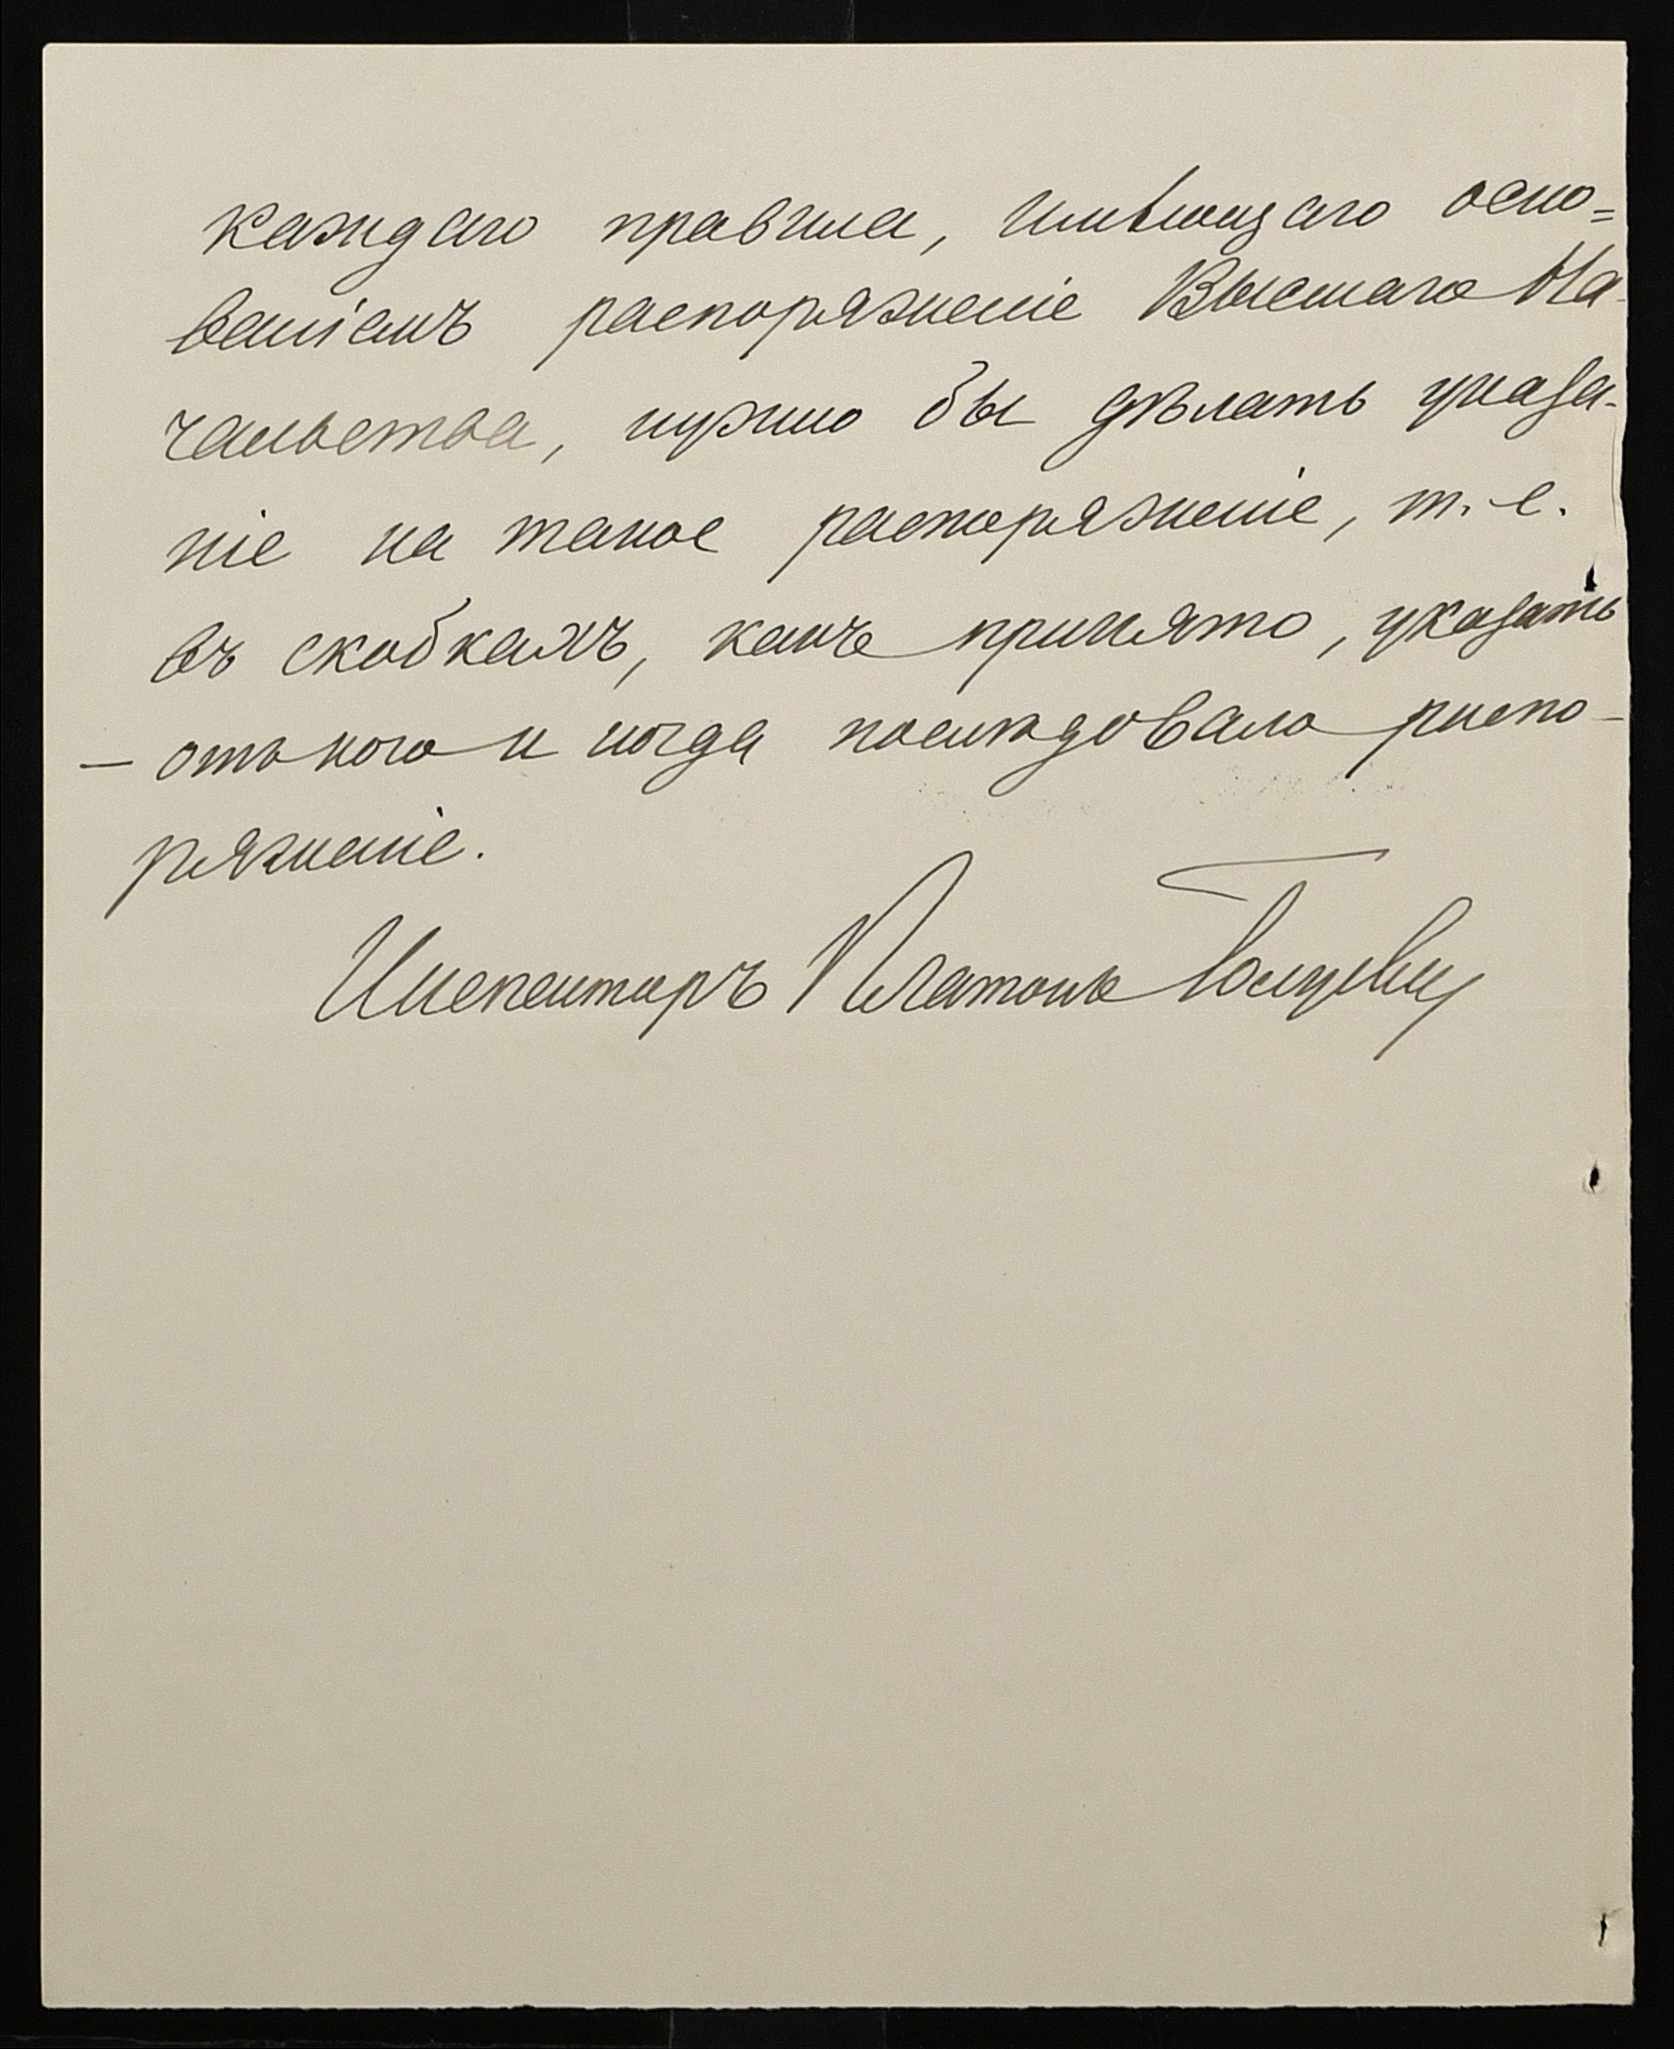 каждаго правила, имѣющаго осно=
ваніемъ распоряженіе Высшаго На-
чальства, нужно бы дѣлать указа-
ніе на такое распоряженіе, т. е.
въ скобкахъ, какъ принято, указать
— отъ кого и когда послѣдовало распо-
ряженіе.
Инспекторъ Платонъ